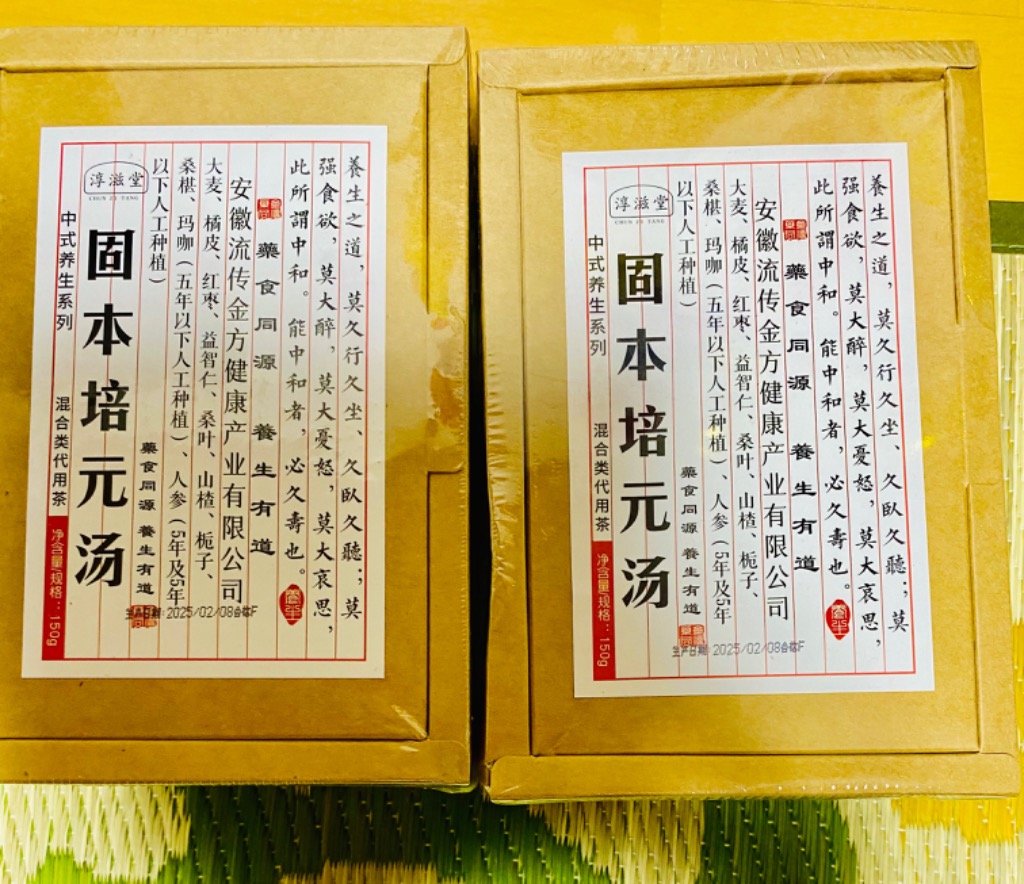 養生之道，莫久行久坐、久臥久聽；莫
强食欲，莫大醉，莫大憂怒，莫大哀思，
此所謂中和。能中和者，必久壽也。
藥食同源 養生有道
安徽流传金方健康产业有限公司
大麦、橘皮、红枣、益智仁、桑叶、山楂、栀子、
桑椹、玛咖（五年以下人工种植）、人参（5年及5年
以下人工种植）
藥食同源 養生有道
淳滋堂
CHUN ZI TANG
固本培元汤
中式养生系列
混合类代用茶
净含量/规格：150g
生产日期:2025/02/08合格F
養生之道，莫久行久坐、久臥久聽；莫
强食欲，莫大醉，莫大憂怒，莫大哀思，
此所謂中和。能中和者，必久壽也。
藥食同源 養生有道
安徽流传金方健康产业有限公司
大麦、橘皮、红枣、益智仁、桑叶、山楂、栀子、
桑椹、玛咖（五年以下人工种植）、人参（5年及5年
以下人工种植）
藥食同源 養生有道
淳滋堂
CHUN ZI TANG
固本培元汤
中式养生系列
混合类代用茶
净含量/规格：150g
生产日期:2025/02/08合格F